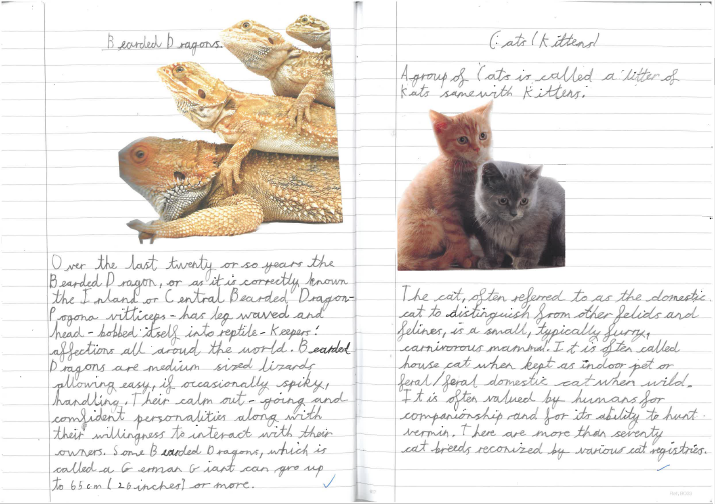 Bearded Dragons.
Over the last twenty or so years the
Bearded Dragon, or as it is correctly known
the Inland or Central Bearded Dragon-
Pogona vitticeps - has leg waved and
head - bobbed itself into reptile - keepers!
affections all aroud the world. Bearded
Dragons are medium sized lizards
allowing easy, if occasionally spiky,
handling. Their calm out - going and
comfident personalities along with
their willingness to interact with their
owners. Some Bearded Dragons, which is
called a German Giant can gro up
to 65cm [26 inches] or more.
Cats/Kittens/
A group of Cats is called a litter of
Kats same with Kittens.
The cat, often referred to as the domestic
cat to distinguish from other felids and
felines, is a small, typically furry,
carnivorous mammal. It is often called
house cat when kept as indoor pet or
feral/feral domestic cat when wild.
It is often valued by humans for
companionship and for its ability to hunt
vermin. There are more than seventy
cat breeds reconized by various cat registries.